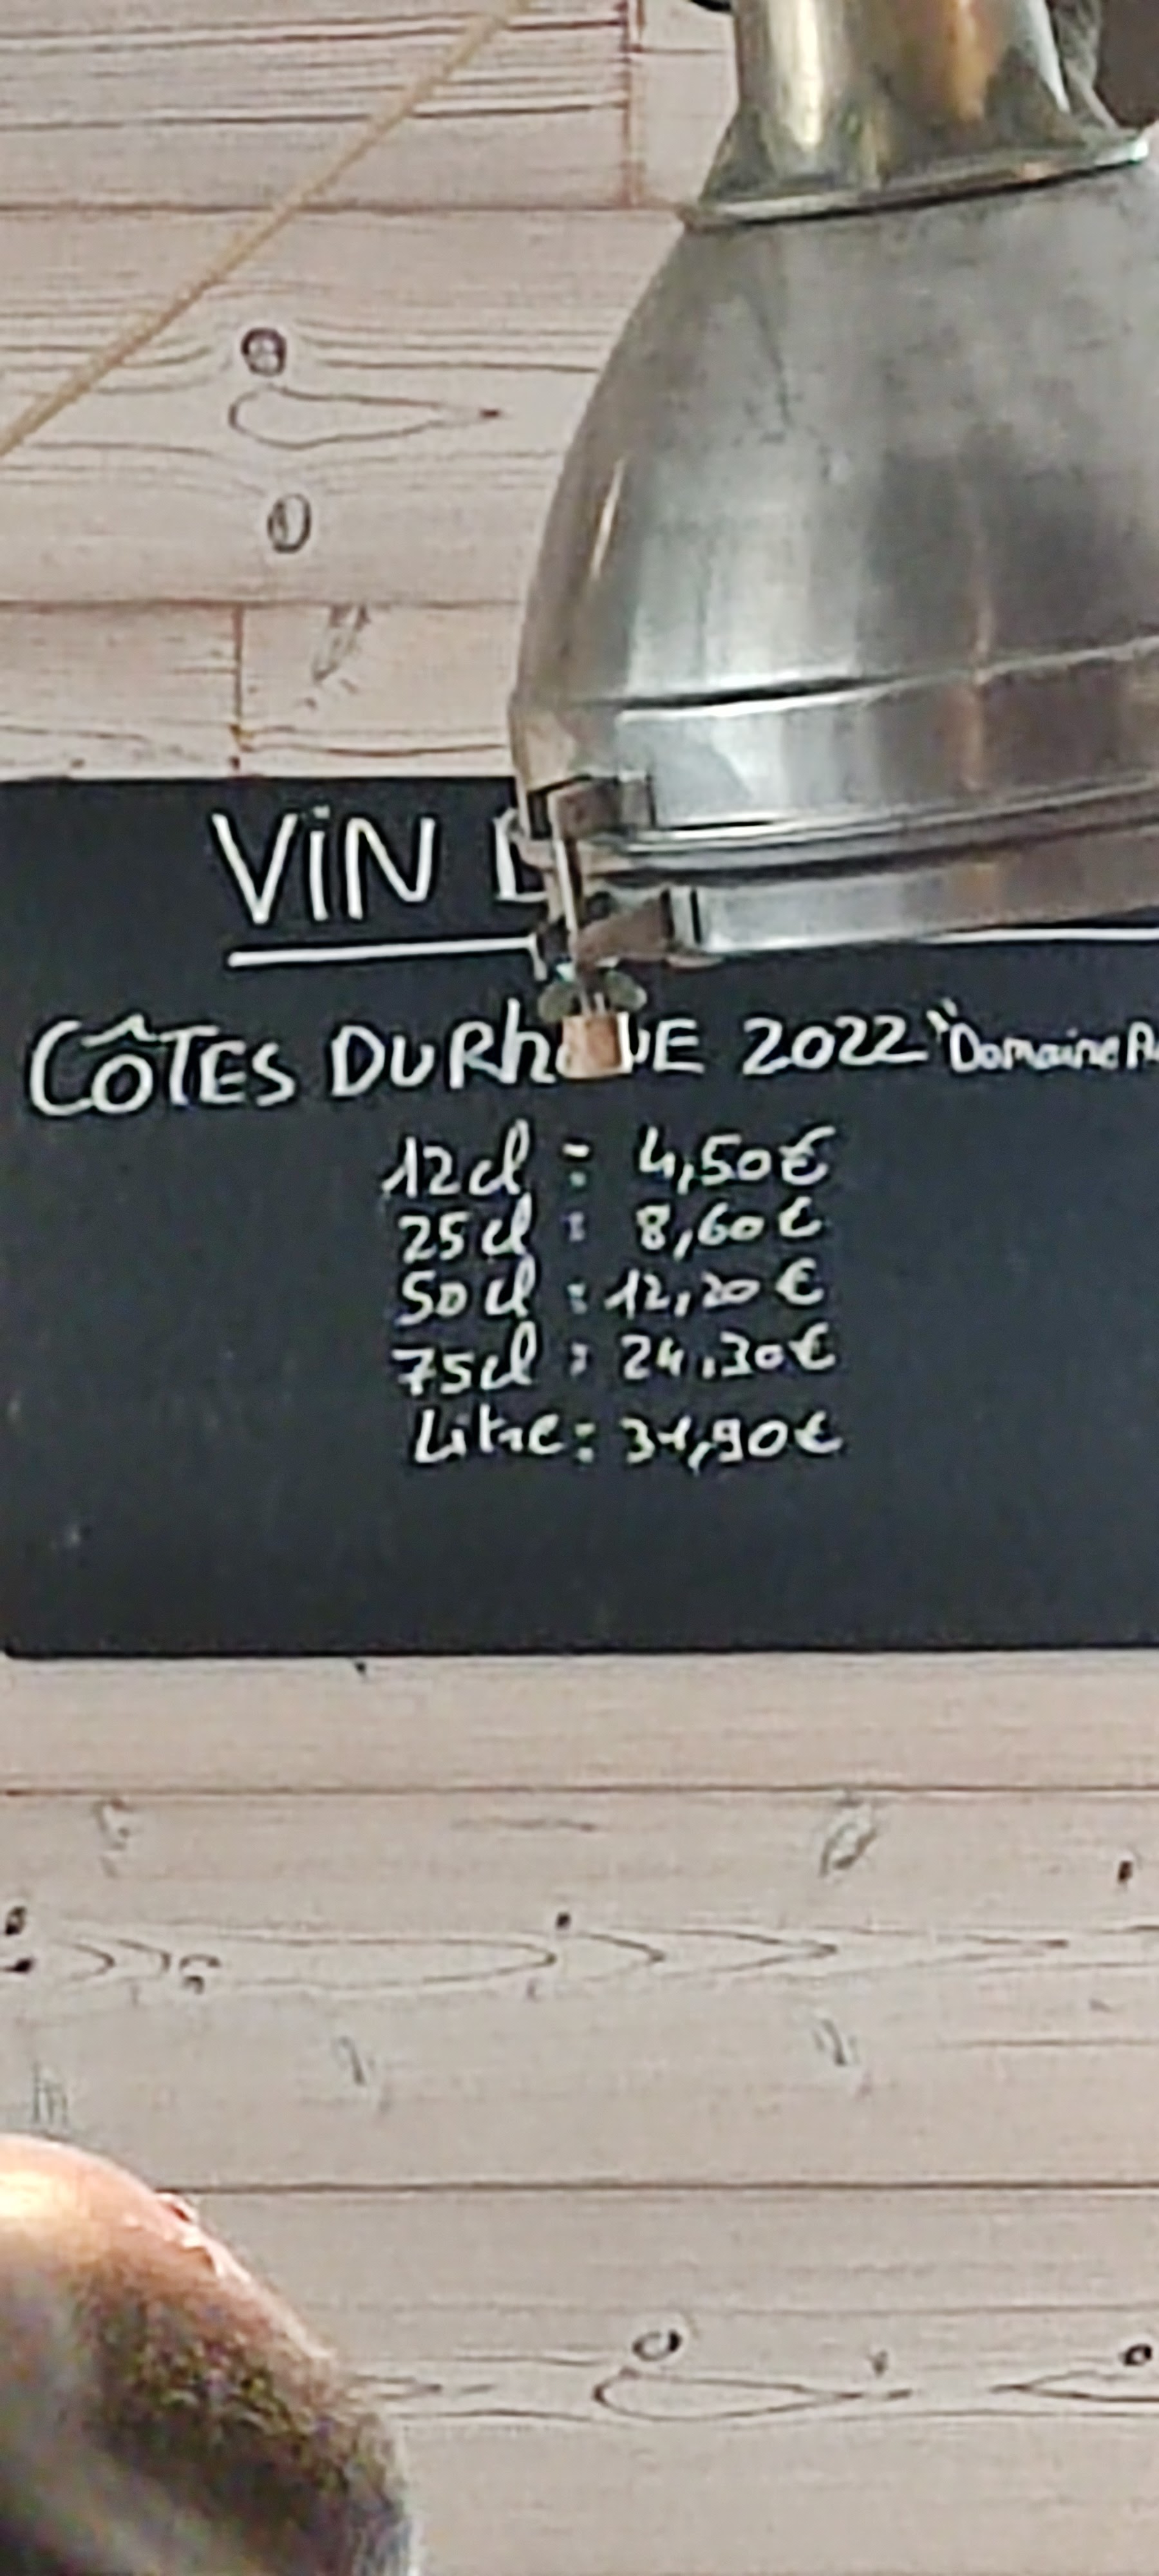 ViN
CÔTES DU RhÔNE 2022 "Domaine
12cl : 4,50€
25cl : 8,60€
50cl : 12,20€
75cl : 24,30€
Litre : 31,90€